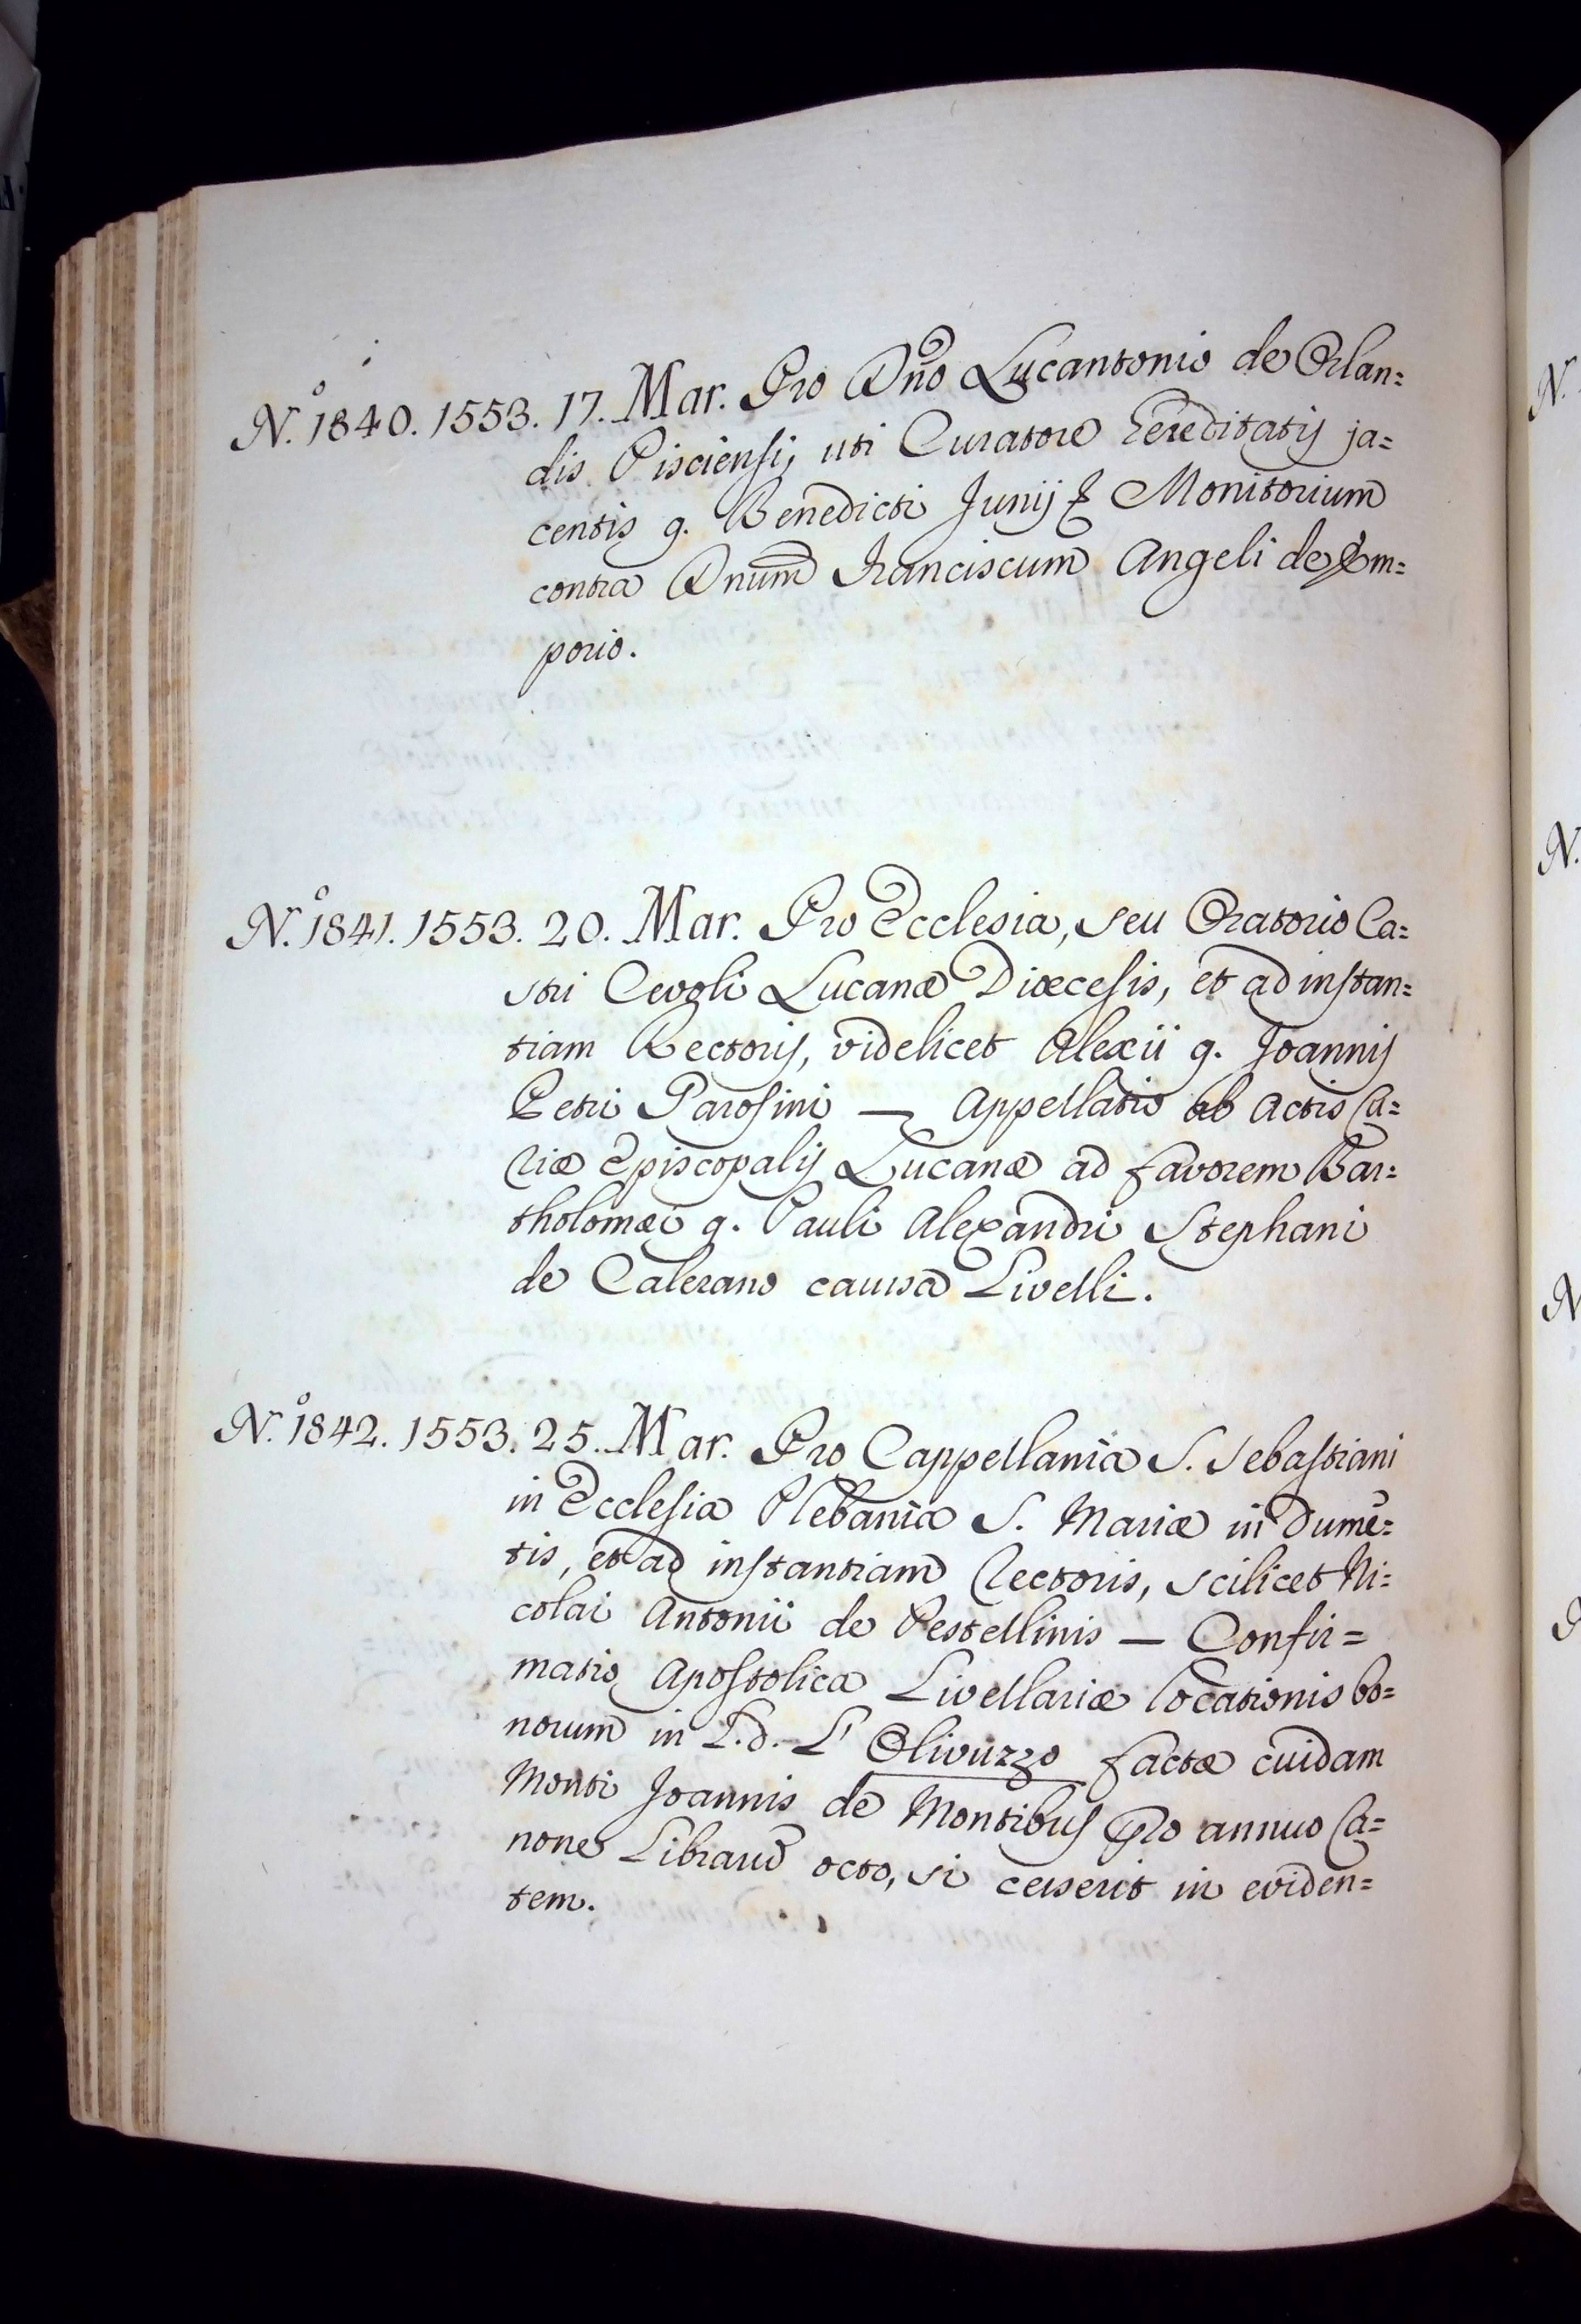 N.º 1840. 1553. 17. Mar. Pro Dno Lucantonio de Orlan=
dis Pisciensi, uti Curatore hereditatis ja=
centis q. Benedicti Junij & Monitorium
contra Dnum Franciscum Angeli de Em=
porio.
N.º 1841. 1553. 20. Mar. Pro Ecclesia, seu Oratorio Ca=
stri Cevoli Lucanæ Diœcesis, et ad instan=
tiam Rectoris, videlicet Alexii q. Joannis
Petri Parosini — Appellatio ab Actis Cu=
riæ Episcopalis Lucanæ ad favorem Bar=
tholomæi q. Pauli Alexandri Stephani
de Calerano causa Livelli.
N.º 1842. 1553. 25. Mar. Pro Cappellania S. Sebastiani
in Ecclesia Plebania S. Mariæ in Dume=
tis, et ad instantiam Rectoris, scilicet Ni=
colai Antonii de Pestellinis — Confir=
matio Apostolica Livellariæ locationis bo=
norum in L.d. L' Olivuzzo factæ cuidam
Monti Joannis de Montibus pro annuo Ca=
none Librarũ octo, si cesserit in eviden=
tem.
N.
N.
N